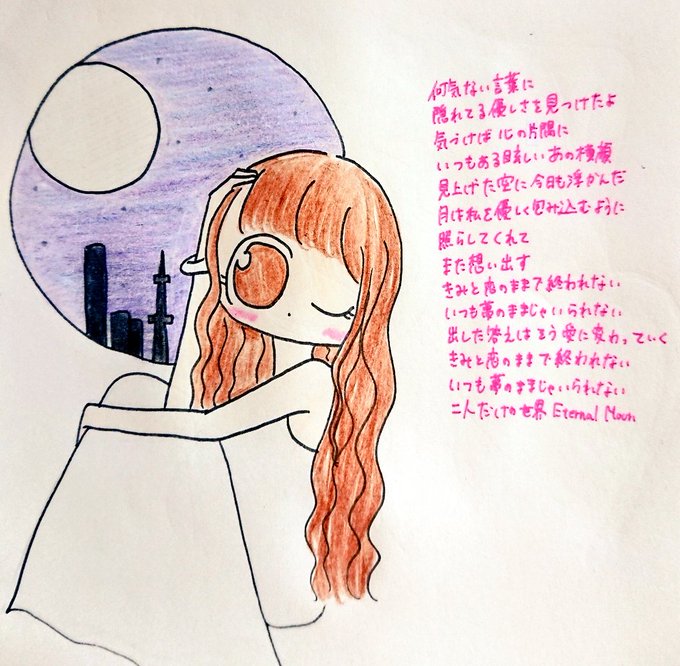 何気ない言葉に
隠れてる優しさを見つけたよ
気づけば心の片隅に
いつもある眩しいあの横顔
見上げた空に今日も浮かんだ
月は私を優しく包み込むように
照らしてくれて
また想い出す
きみと恋のままで終われない
いつも夢のままじゃいられない
出した答えはもう愛に変わっていく
きみと恋のままで終われない
いつも夢のままじゃいられない
二人だけの世界 Eternal Moon